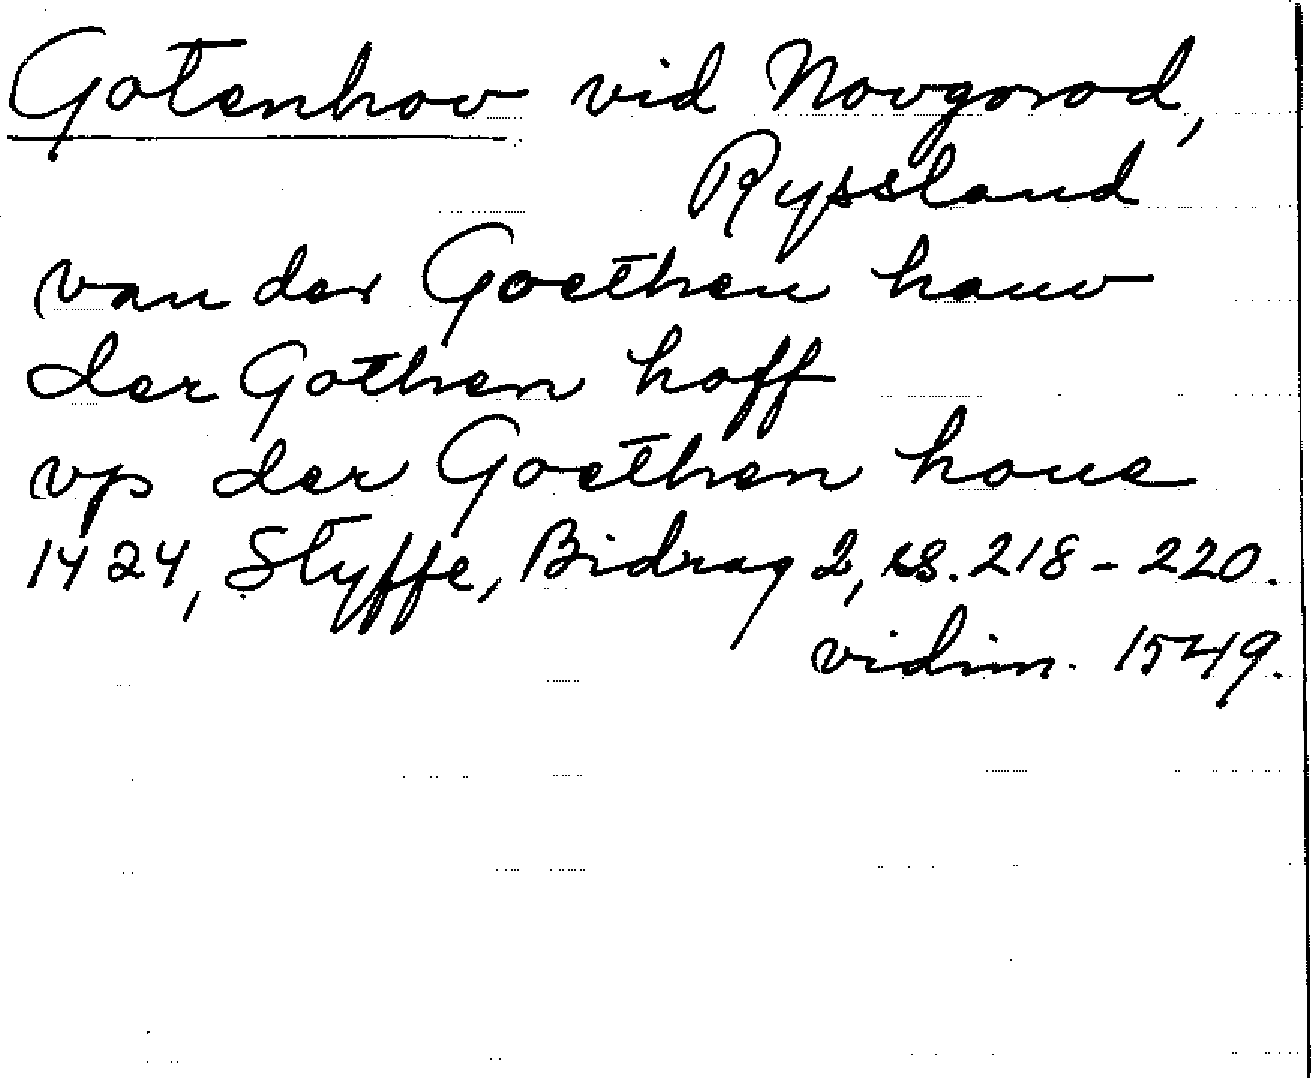 Gotenhov vid Novgorod,
Ryssland
van der Goethen hauw
der Gothen hoff
vp der Goethen houe
1424, Styffe, Bidrag 2, ss. 218-220.
vidim. 1549.